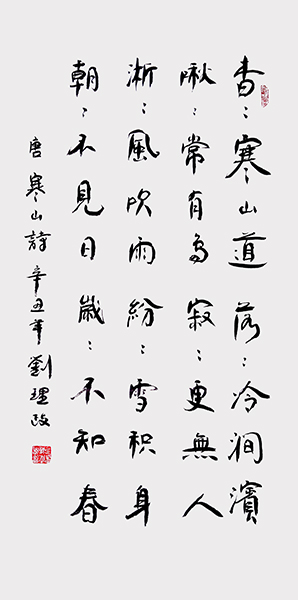 杳々寒山道落々冷澗濱
啾々常有鳥寂々更無人
淅々風吹雨紛々雪积身
朝々不見日歲々不知春
唐寒山詩辛丑年劉理政